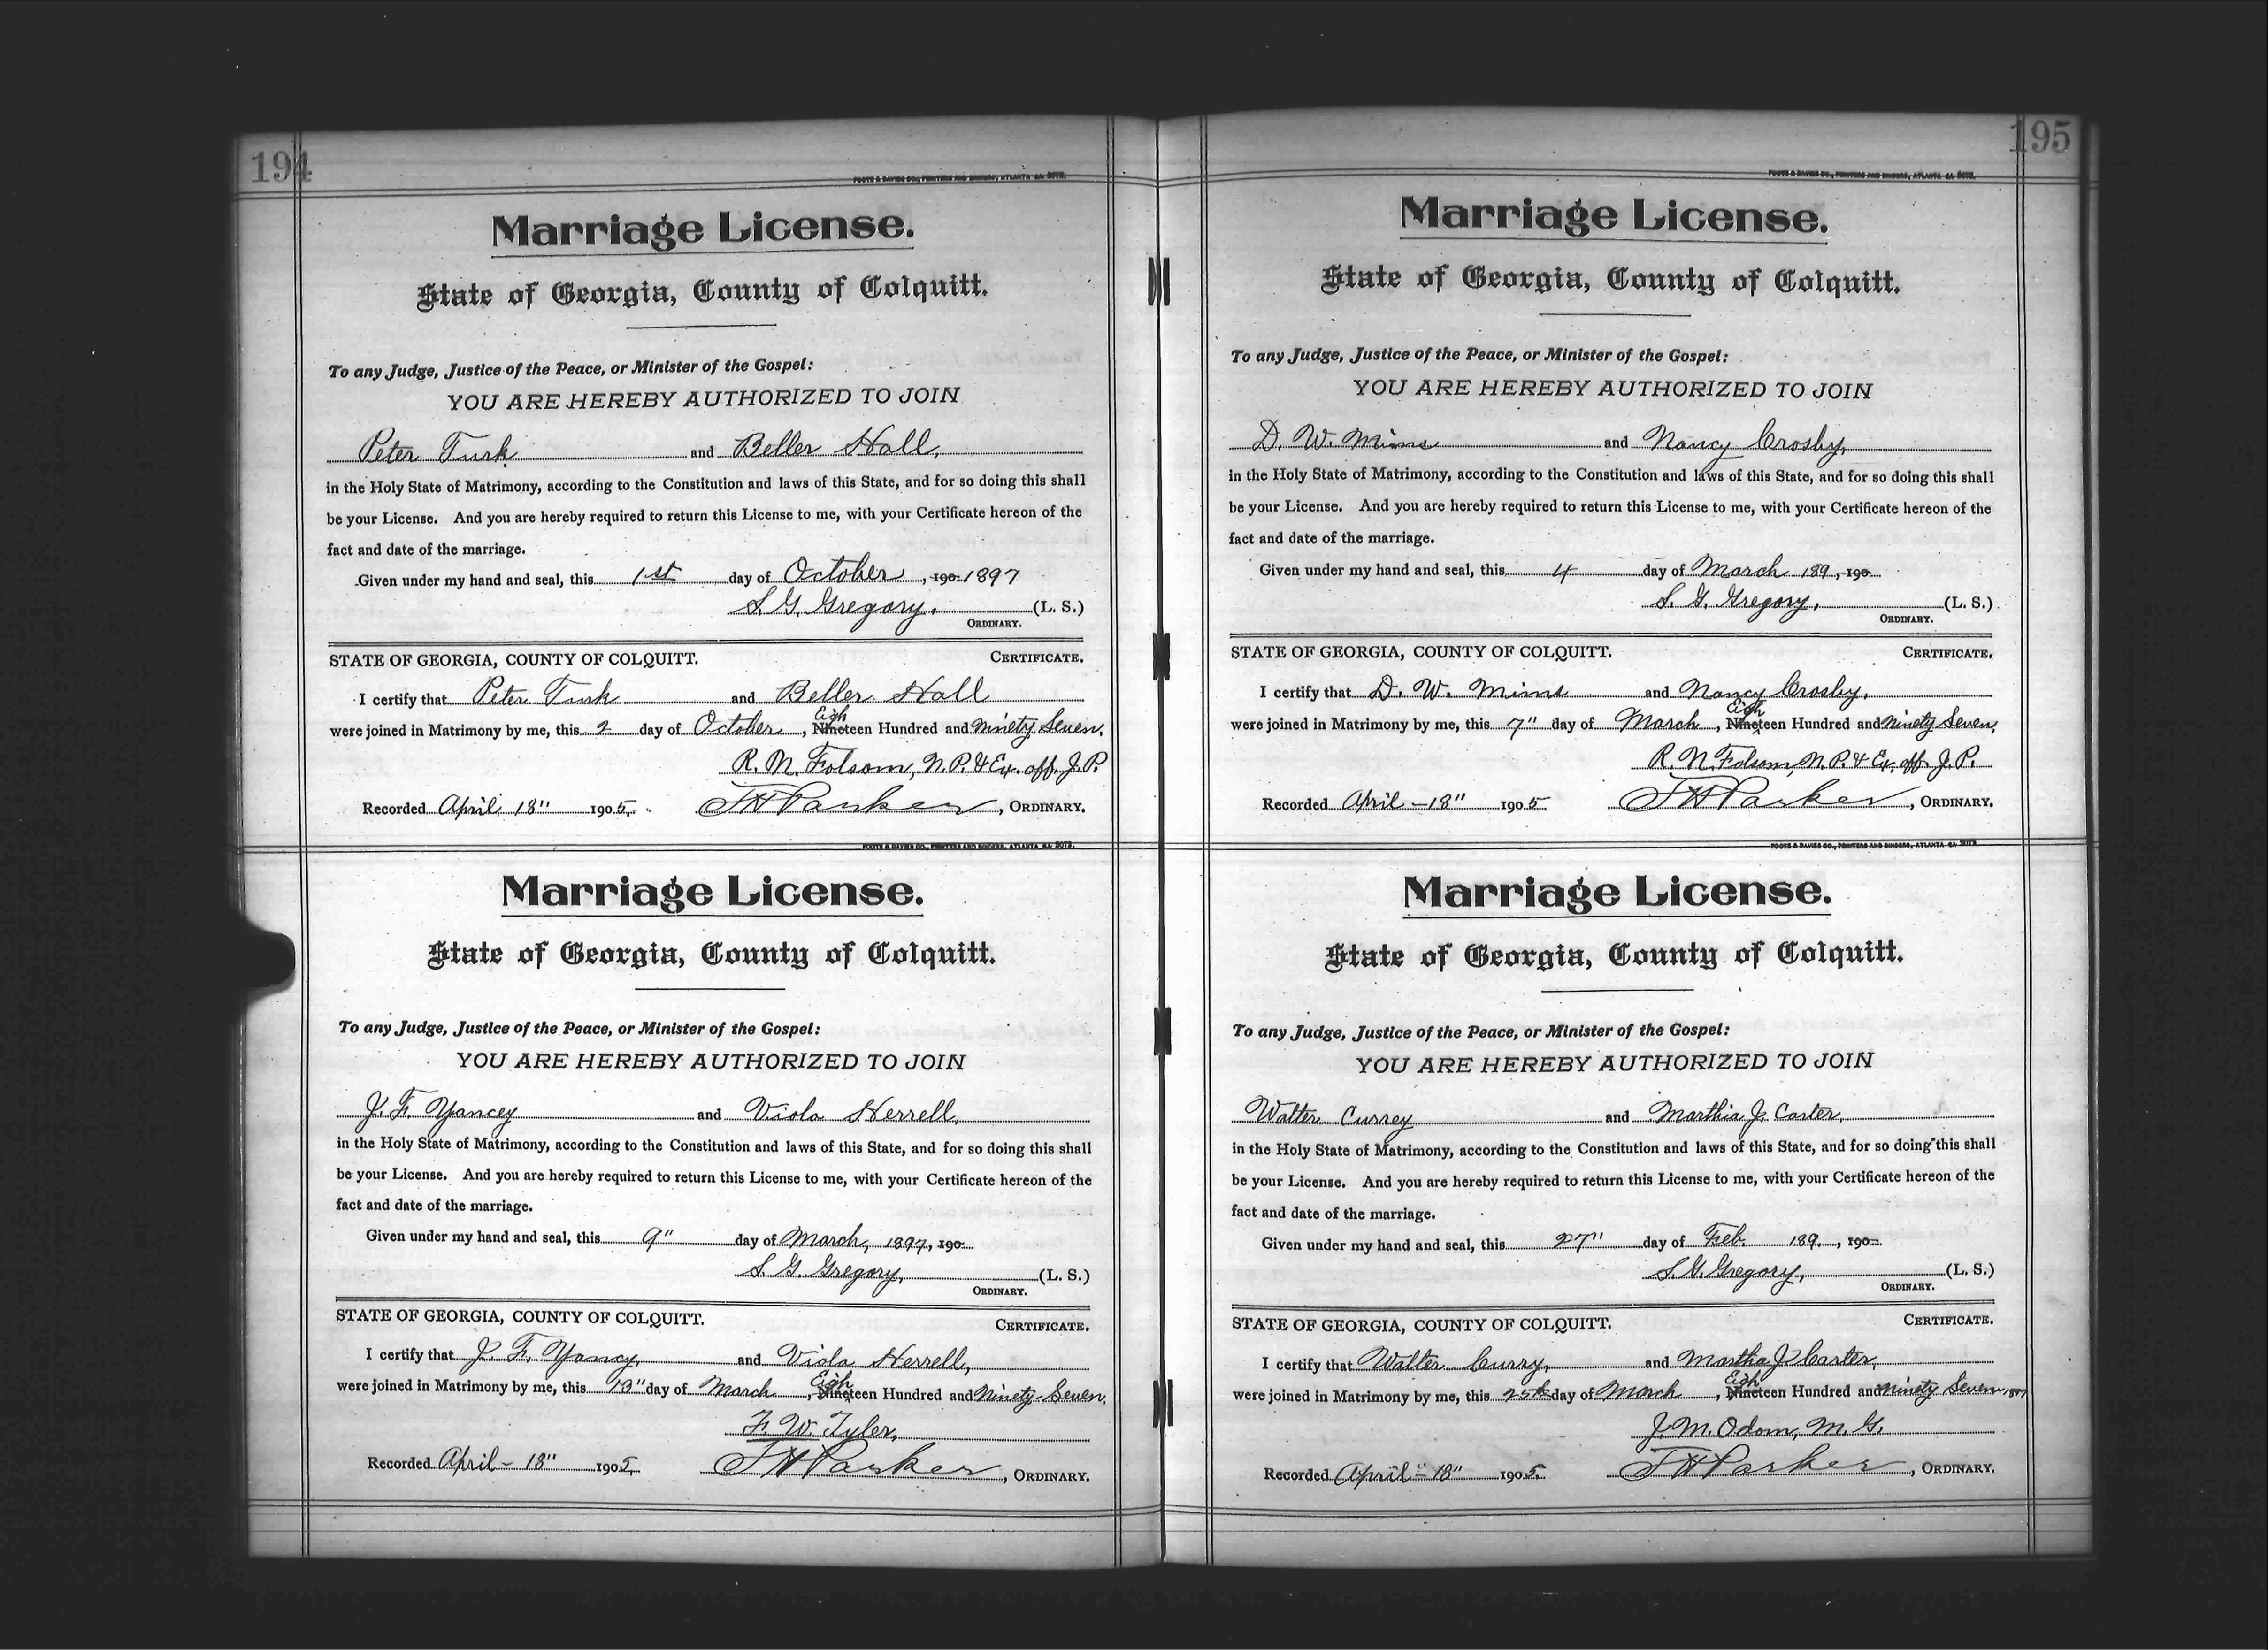 194
FOOTE & DAVIES CO., PRINTERS AND BINDERS, ATLANTA GA.
Marriage License.
State of Georgia, County of Colquitt.
To any Judge, Justice of the Peace, or Minister of the Gospel:
YOU ARE HEREBY AUTHORIZED TO JOIN
Peter Turk and Beller Hall,
in the Holy State of Matrimony, according to the Constitution and laws of this State, and for so doing this shall
be your License. And you are hereby required to return this License to me, with your Certificate hereon of the
fact and date of the marriage.
Given under my hand and seal, this 1st day of October, 190 1897
S. G. Gregory. (L. S.)
ORDINARY.
STATE OF GEORGIA, COUNTY OF COLQUITT. CERTIFICATE.
I certify that Peter Turk and Beller Hall
Eigh
were joined in Matrimony by me, this 2 day of October, Nineteen Hundred and Ninety Seven.
R. N. Folsom, N.P. & Ex. off. J.P.
Recorded April 18" 1905. J H Parker, ORDINARY.
FOOTE & DAVIES CO., PRINTERS AND BINDERS, ATLANTA GA.
Marriage License.
State of Georgia, County of Colquitt.
To any Judge, Justice of the Peace, or Minister of the Gospel:
YOU ARE HEREBY AUTHORIZED TO JOIN
J. F. Yancey and Viola Herrell,
in the Holy State of Matrimony, according to the Constitution and laws of this State, and for so doing this shall
be your License. And you are hereby required to return this License to me, with your Certificate hereon of the
fact and date of the marriage.
Given under my hand and seal, this 9" day of March, 1897, 190
S. G. Gregory, (L. S.)
ORDINARY.
STATE OF GEORGIA, COUNTY OF COLQUITT. CERTIFICATE.
I certify that J. F. Yancy, and Viola Herrell,
Eigh
were joined in Matrimony by me, this 13" day of March, Nineteen Hundred and Ninety-Seven.
F. W. Tyler,
Recorded April - 18" 1905. J H Parker, ORDINARY.
195
FOOTE & DAVIES CO., PRINTERS AND BINDERS, ATLANTA, GA.
Marriage License.
State of Georgia, County of Colquitt.
To any Judge, Justice of the Peace, or Minister of the Gospel:
YOU ARE HEREBY AUTHORIZED TO JOIN
D. W. Mims and Nancy Crosby,
in the Holy State of Matrimony, according to the Constitution and laws of this State, and for so doing this shall
be your License. And you are hereby required to return this License to me, with your Certificate hereon of the
fact and date of the marriage.
Given under my hand and seal, this 4 day of March 189, 190
S. G. Gregory, (L. S.)
ORDINARY.
STATE OF GEORGIA, COUNTY OF COLQUITT. CERTIFICATE.
I certify that D. W. Mims and Nancy Crosby,
Eigh
were joined in Matrimony by me, this 7" day of March, Nineteen Hundred and Ninety Seven,
R. N. Folsom, N.P. & Ex. off. J.P.
Recorded April - 18" 1905 J H Parker, ORDINARY.
FOOTE & DAVIES CO., PRINTERS AND BINDERS, ATLANTA GA.
Marriage License.
State of Georgia, County of Colquitt.
To any Judge, Justice of the Peace, or Minister of the Gospel:
YOU ARE HEREBY AUTHORIZED TO JOIN
Walter Currey and Marthia J. Carter,
in the Holy State of Matrimony, according to the Constitution and laws of this State, and for so doing this shall
be your License. And you are hereby required to return this License to me, with your Certificate hereon of the
fact and date of the marriage.
Given under my hand and seal, this 27" day of Feb. 189, 190
S. G. Gregory, (L. S.)
ORDINARY.
STATE OF GEORGIA, COUNTY OF COLQUITT. CERTIFICATE.
I certify that Walter Curry, and Martha J. Carter,
Eigh
were joined in Matrimony by me, this 25th day of March, Nineteen Hundred and Ninety Seven
J. M. Odom, M. G.
Recorded April - 18" 1905. J H Parker, ORDINARY.